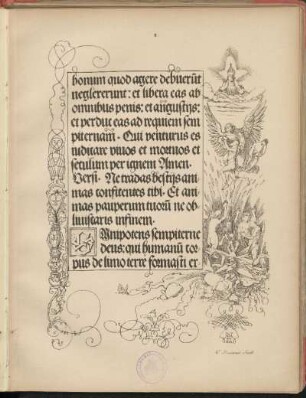 bonum quod agere debuerūt
neglexerunt: et libera eas ab
omnibus penis: et angustijs:
et perduc eas ad requiem sem
piternam. Qui venturus es
iudicare viuos et mortuos et
seculum per ignem Amen.
Versi. Ne tradas bestijs ani
mas confitentes tibi. Et ani
mas pauperum tuorū ne ob
liuiscaris infinem.
Omnipotens sempiterne
deus: qui humanū cor
pus de limo terre formasti et